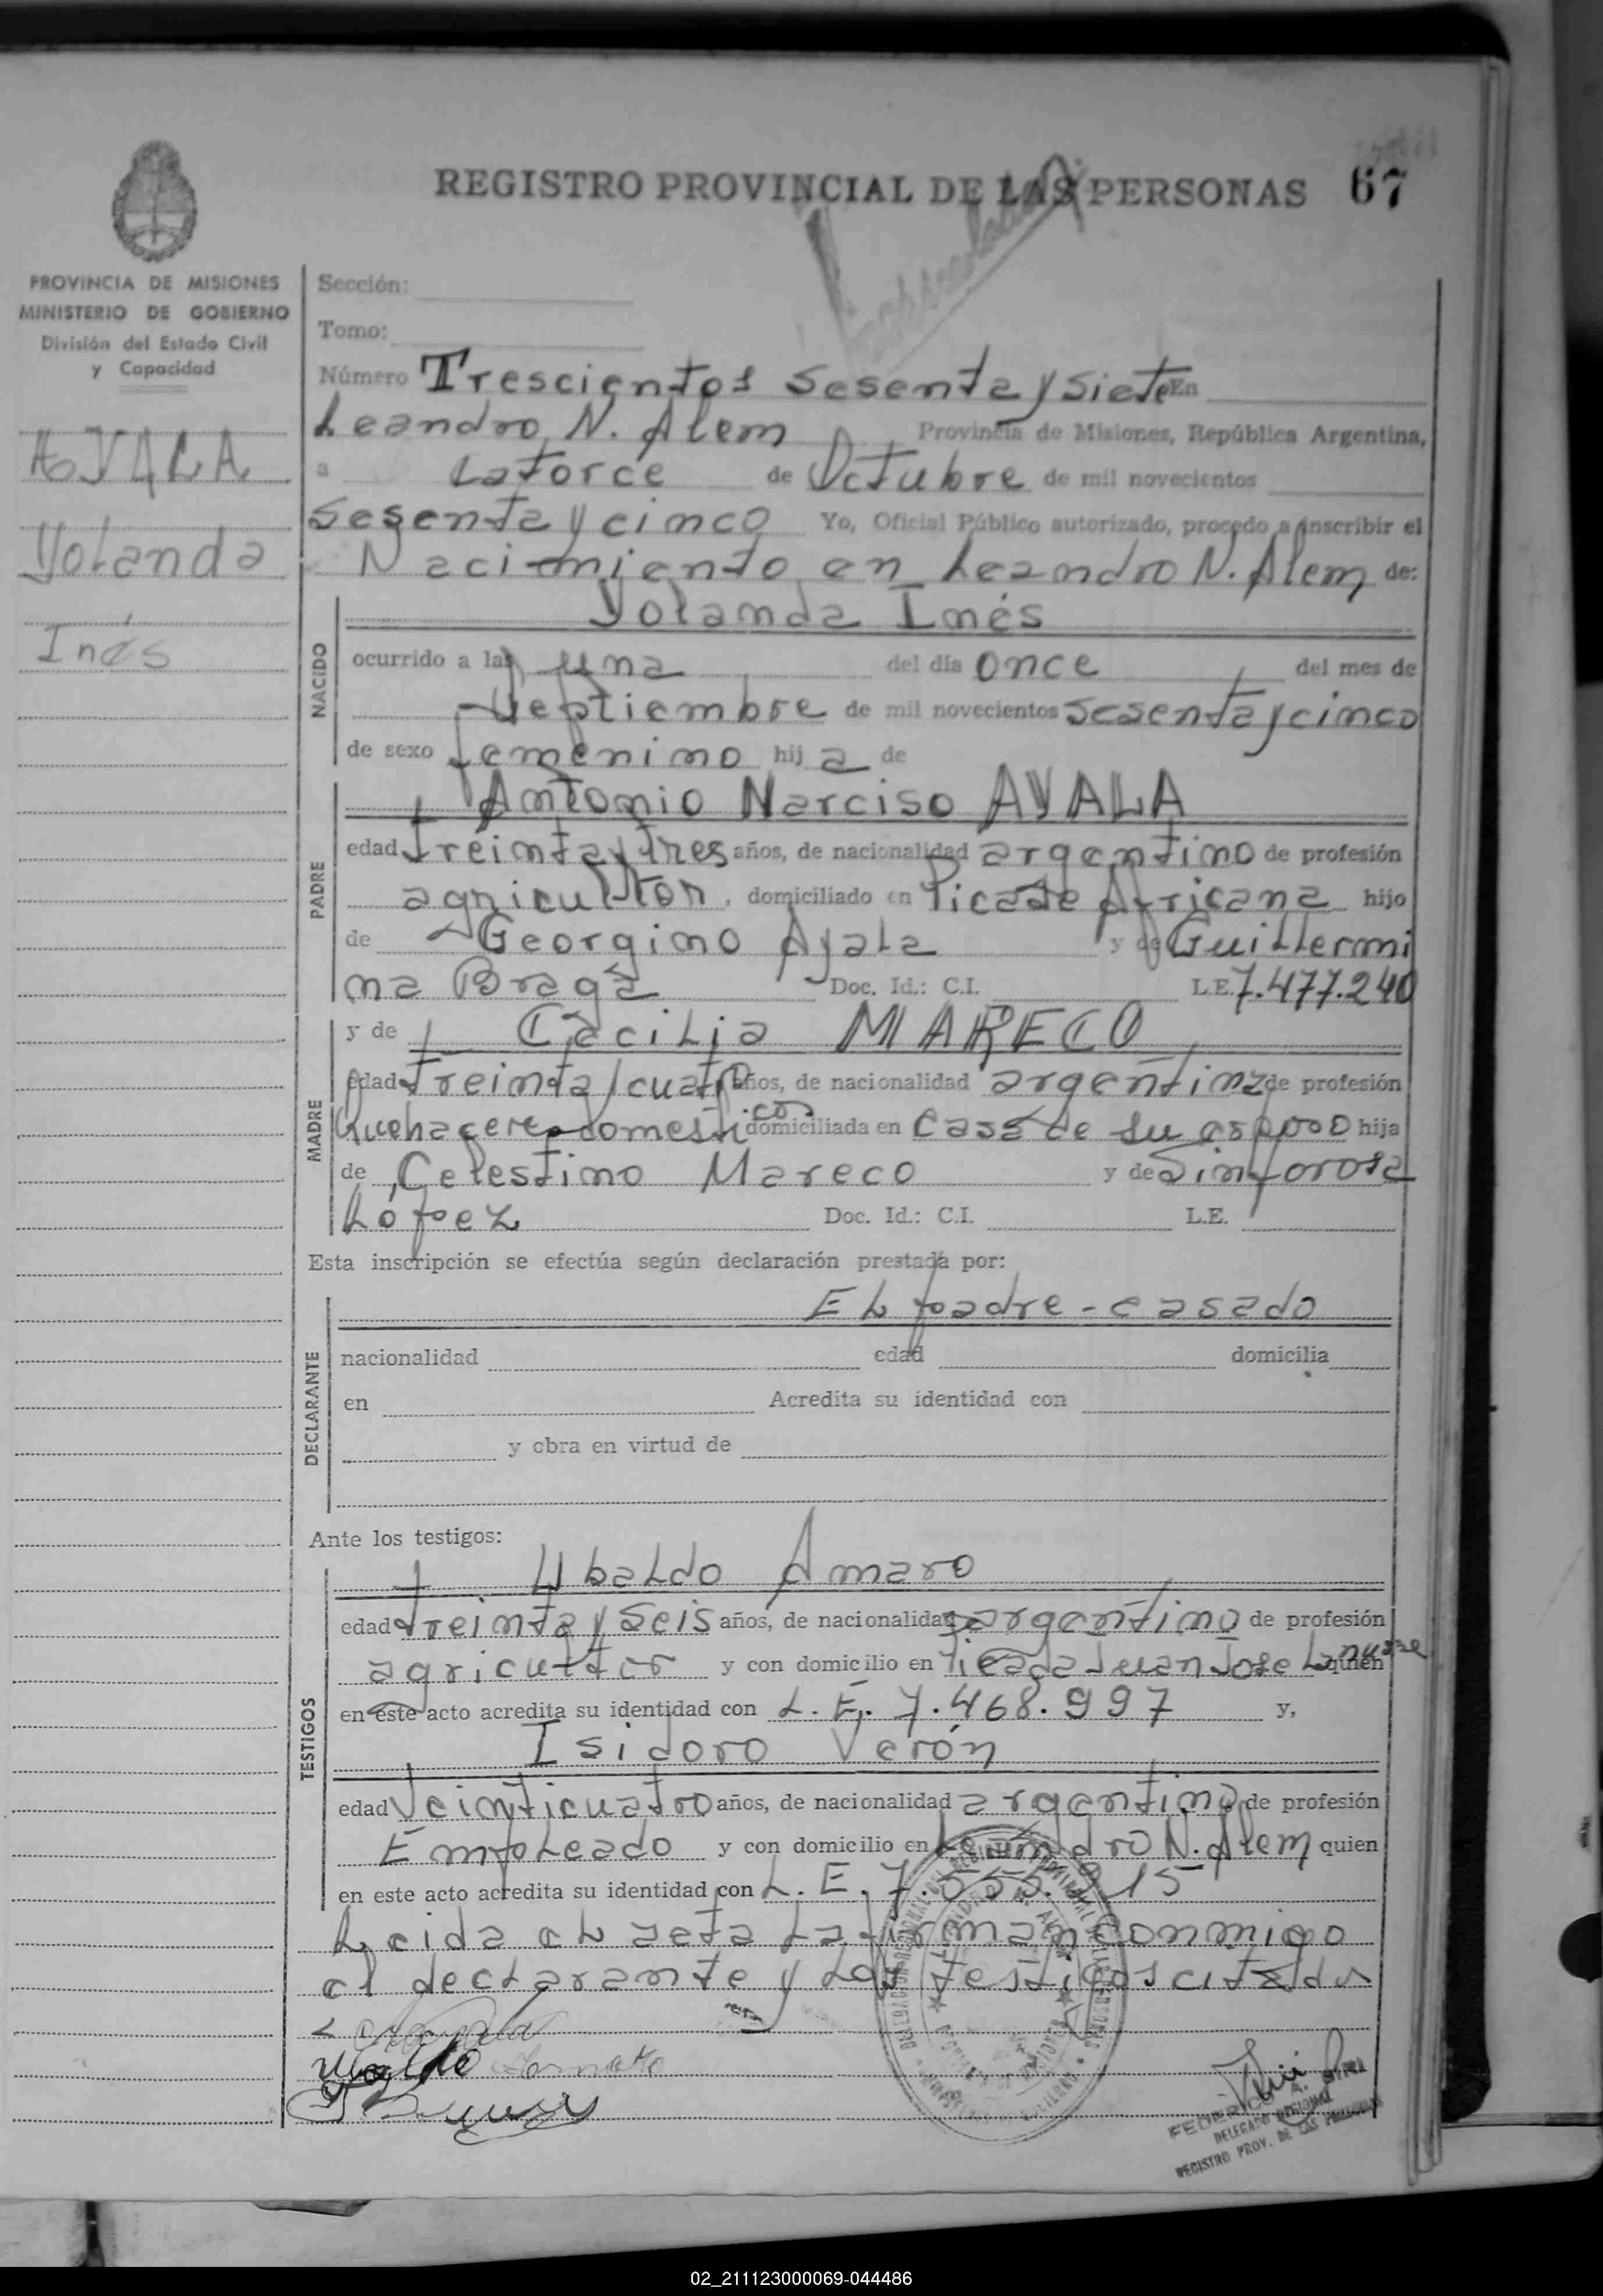 REGISTRO PROVINCIAL DE LAS PERSONAS 67
PROVINCIA DE MISIONES
MINISTERIO DE GOBIERNO
División del Estado Civil
y Capacidad
AYALA
Yolanda
Inés
Sección:
Tomo:
Número Trescientos Sesenta y Siete En
Leandro N. Alem Provincia de Misiones, República Argentina,
a Catorce de Octubre de mil novecientos
Sesenta y cinco Yo, Oficial Público autorizado, procedo a inscribir el
Nacimiento en Leandro N. Alem de:
NACIDO
Yolanda Inés
ocurrido a las una del día once del mes de
Septiembre de mil novecientos sesenta y cinco
de sexo femenino hij a de
PADRE
Antonio Narciso AYALA
edad treinta y tres años, de nacionalidad argentino de profesión
agricultor, domiciliado en Picada Africana hijo
de Georgino Ayala y de Guillermi
na Braga Doc. Id.: C.I. L.E. 7.477.240
MADRE
y de Cecilia MARECO
edad treinta y cuatro años, de nacionalidad argentina de profesión
Quehaceres domesticos domiciliada en Casa de su esposo hija
de Celestino Mareco y de Sinforosa
López Doc. Id.: C.I. L.E.
Esta inscripción se efectúa según declaración prestada por:
DECLARANTE
El padre - casado
nacionalidad edad domicilia
en Acredita su identidad con
y obra en virtud de
Ante los testigos:
TESTIGOS
Ubaldo Amaro
edad treinta y seis años, de nacionalidad argentino de profesión
agricultor y con domicilio en Picada Juan José Lanusse quien
en este acto acredita su identidad con L.E. 7.468.997 y,
Isidoro Verón
edad Veinticuatro años, de nacionalidad argentino de profesión
Empleado y con domicilio en Leandro N. Alem quien
en este acto acredita su identidad con L.E. 7.555.915
Leida el acta la firman conmigo
el declarante y los testigos citados
Ubaldo
FEDERICO A.
DELEGADO REGIONAL
REGISTRO PROV. DE LAS PERSONAS
02_211123000069-044486